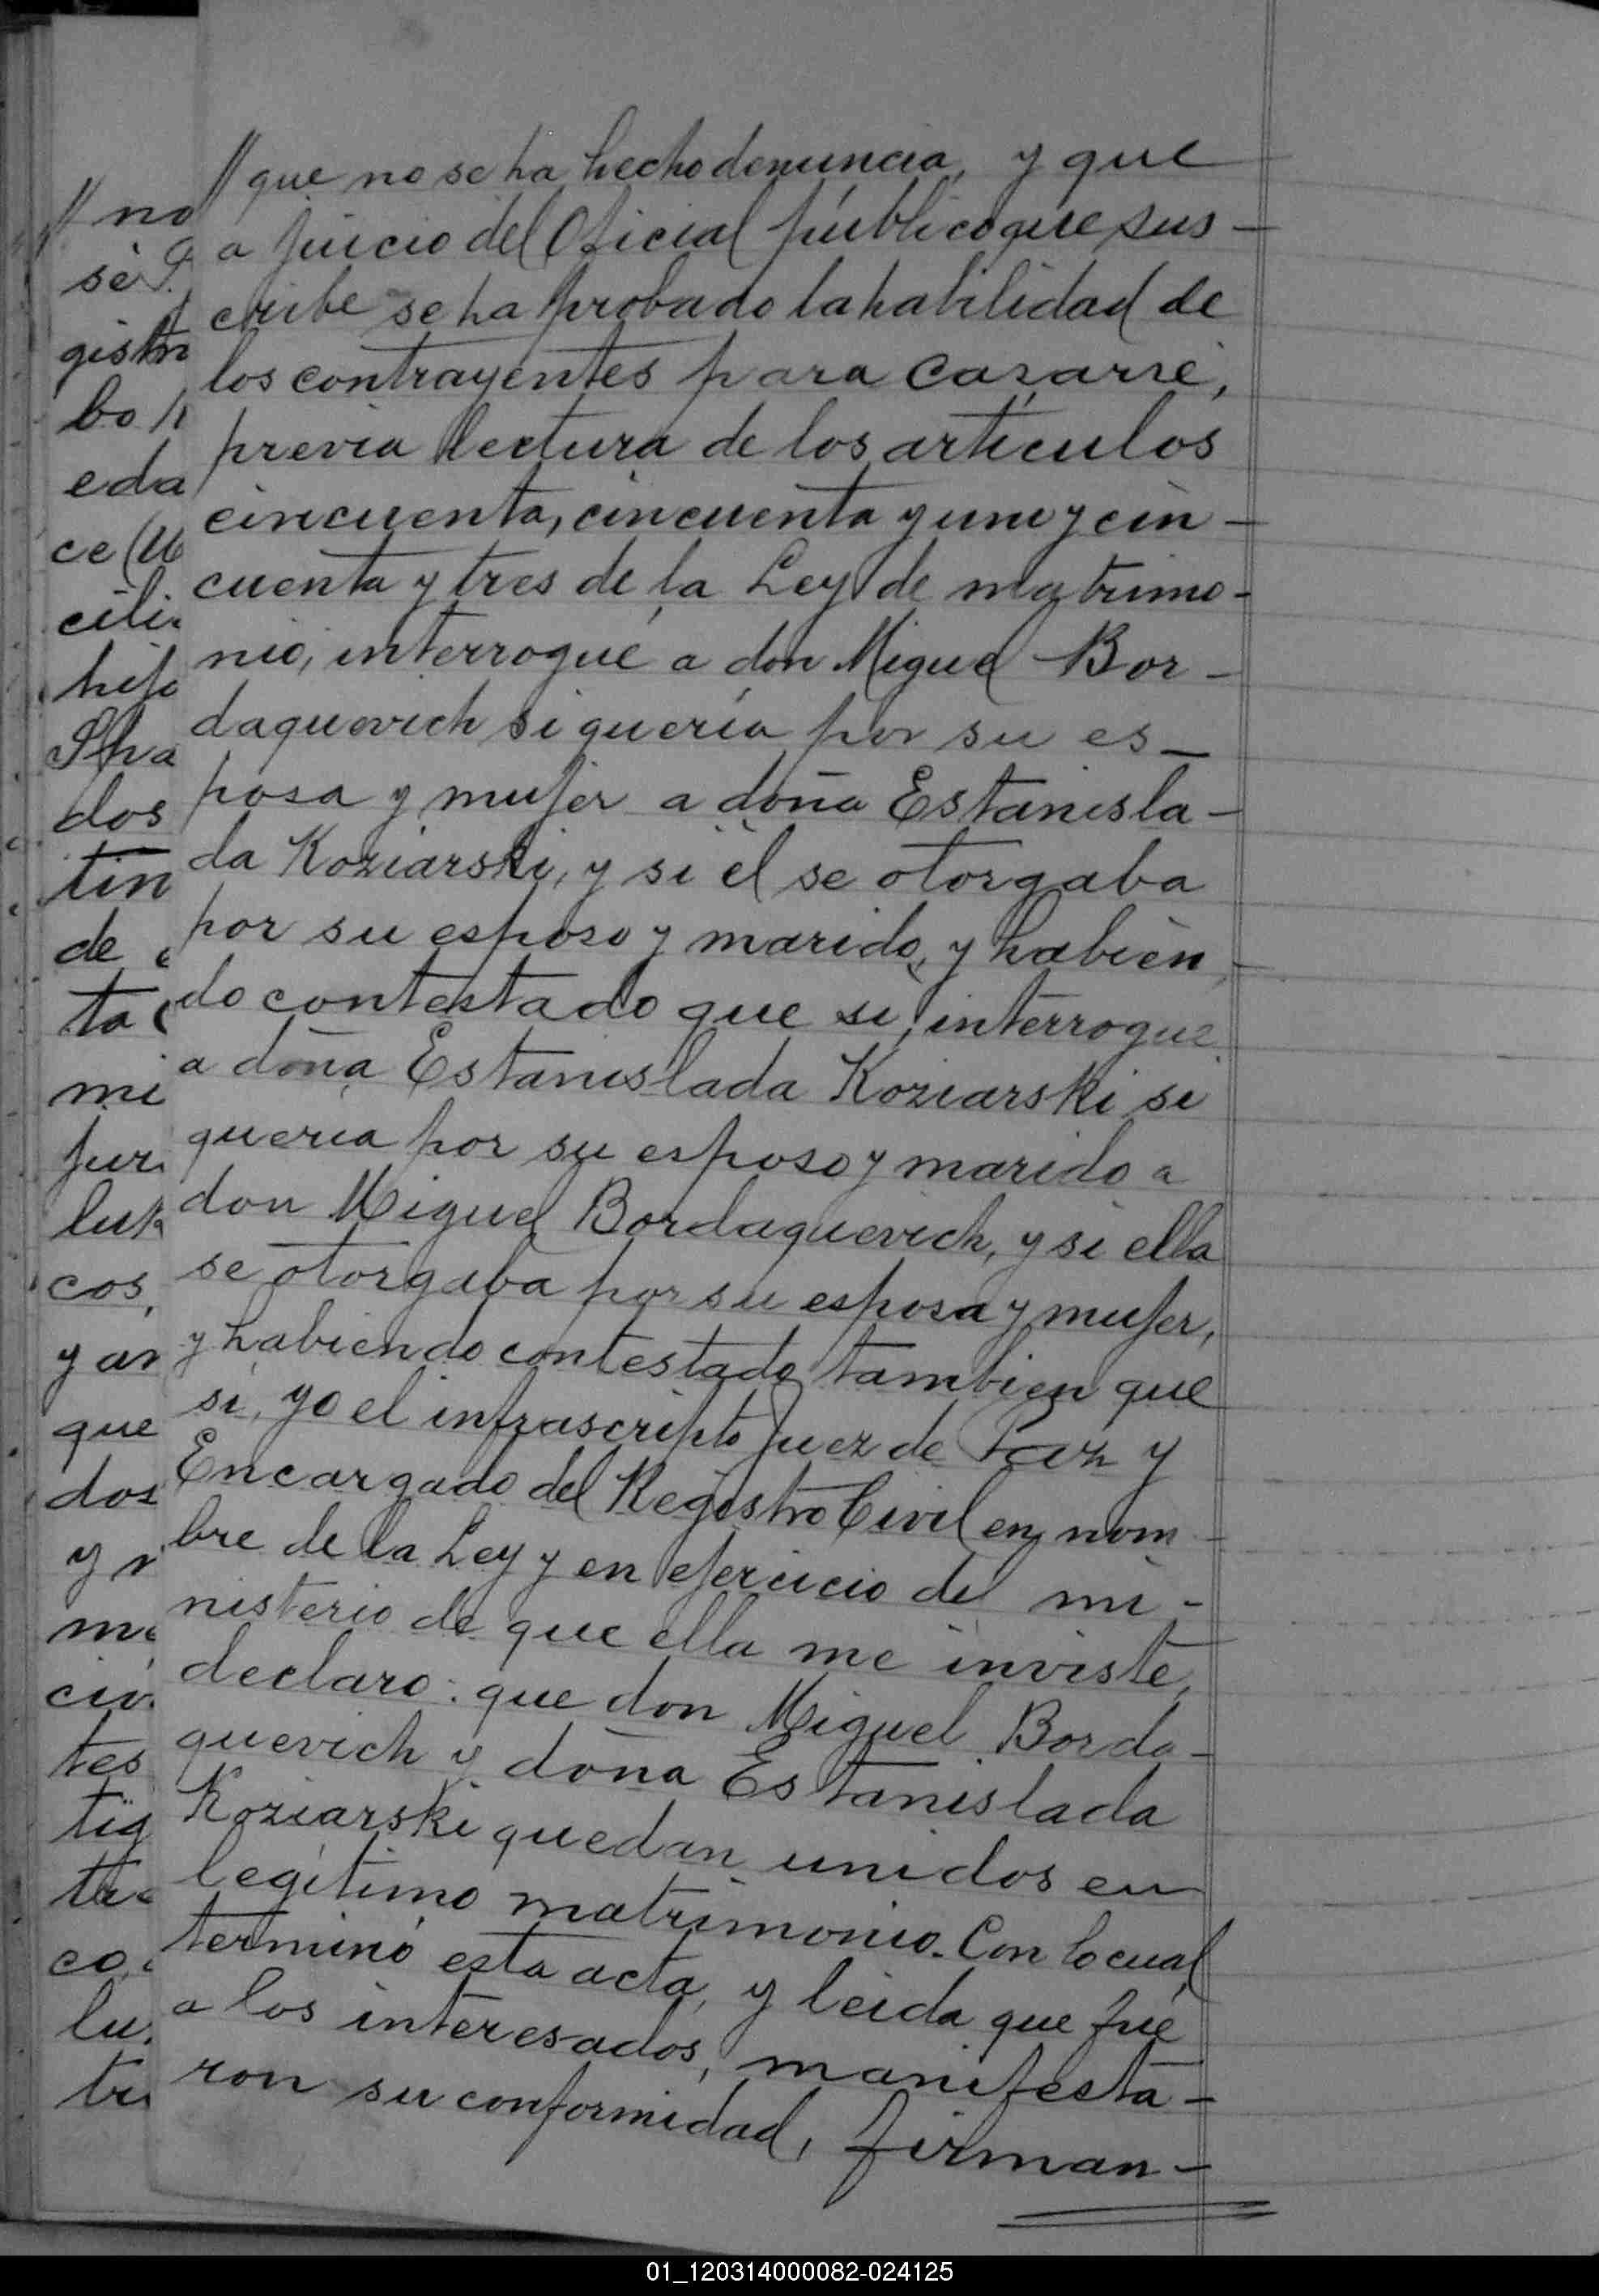 // que no se ha hecho denuncia, y que
a juicio del Oficial público que sus-
cribe se ha probado la habilidad de
los contrayentes para casarse,
previa lectura de los artículos
cincuenta, cincuenta y uno y cin-
cuenta y tres de la Ley de matrimo-
nio, interrogué a don Miguel Bor-
daquevich si quería por su es-
posa y mujer a doña Estanisla-
da Koziarski, y si él se otorgaba
por su esposo y marido, y habien
do contestado que si, interrogué
a doña Estanislada Koziarski si
quería por su esposo y marido a
don Miguel Bordaquevich, y si ella
se otorgaba por su esposa y mujer,
y habiendo contestado tambien que
si, yo el infrascripto Juez de Paz y
Encargado del Registro Civil en nom-
bre de la Ley y en ejercicio del mi-
nisterio de que ella me inviste,
declaro: que don Miguel Borda-
quevich y doña Estanislada
Koziarski quedan unidos en
legítimo matrimonio. Con lo cual
terminó esta acta, y leida que fué
a los interesados, manifesta-
ron su conformidad, firman-
// no
se
gistr
bo
eda
ce
cili
hijo
dos
tin
de
ta
mi
jur
cos,
y an
que
dos
y
m
ció
tes
tig
te
co,
lu
tr
01_120314000082-024125